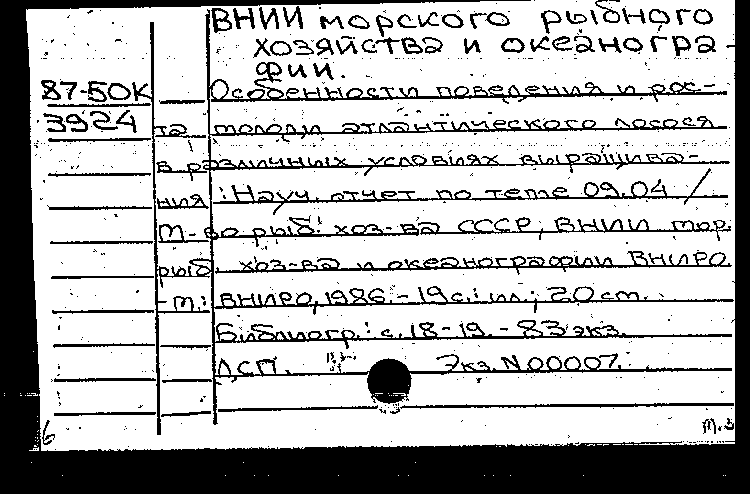 ВНИИ морского рыбного
хозяйства и океаногра-
фии.
87-50К Особенности поведения и рос-
3924 та молоди атлантического лосося
в различных условиях выращива-
ния : Науч. отчет по теме 09.04 /
М-во рыб. хоз-ва СССР, ВНИИ мор.
рыб. хоз-ва и океанографии ВНИРО.
-М.: ВНИРО, 1986. - 19 с.: ил.; 20 см.
Библиогр.: с. 18-19. - 83 экз.
ДСП. Экз. N 00007.
б